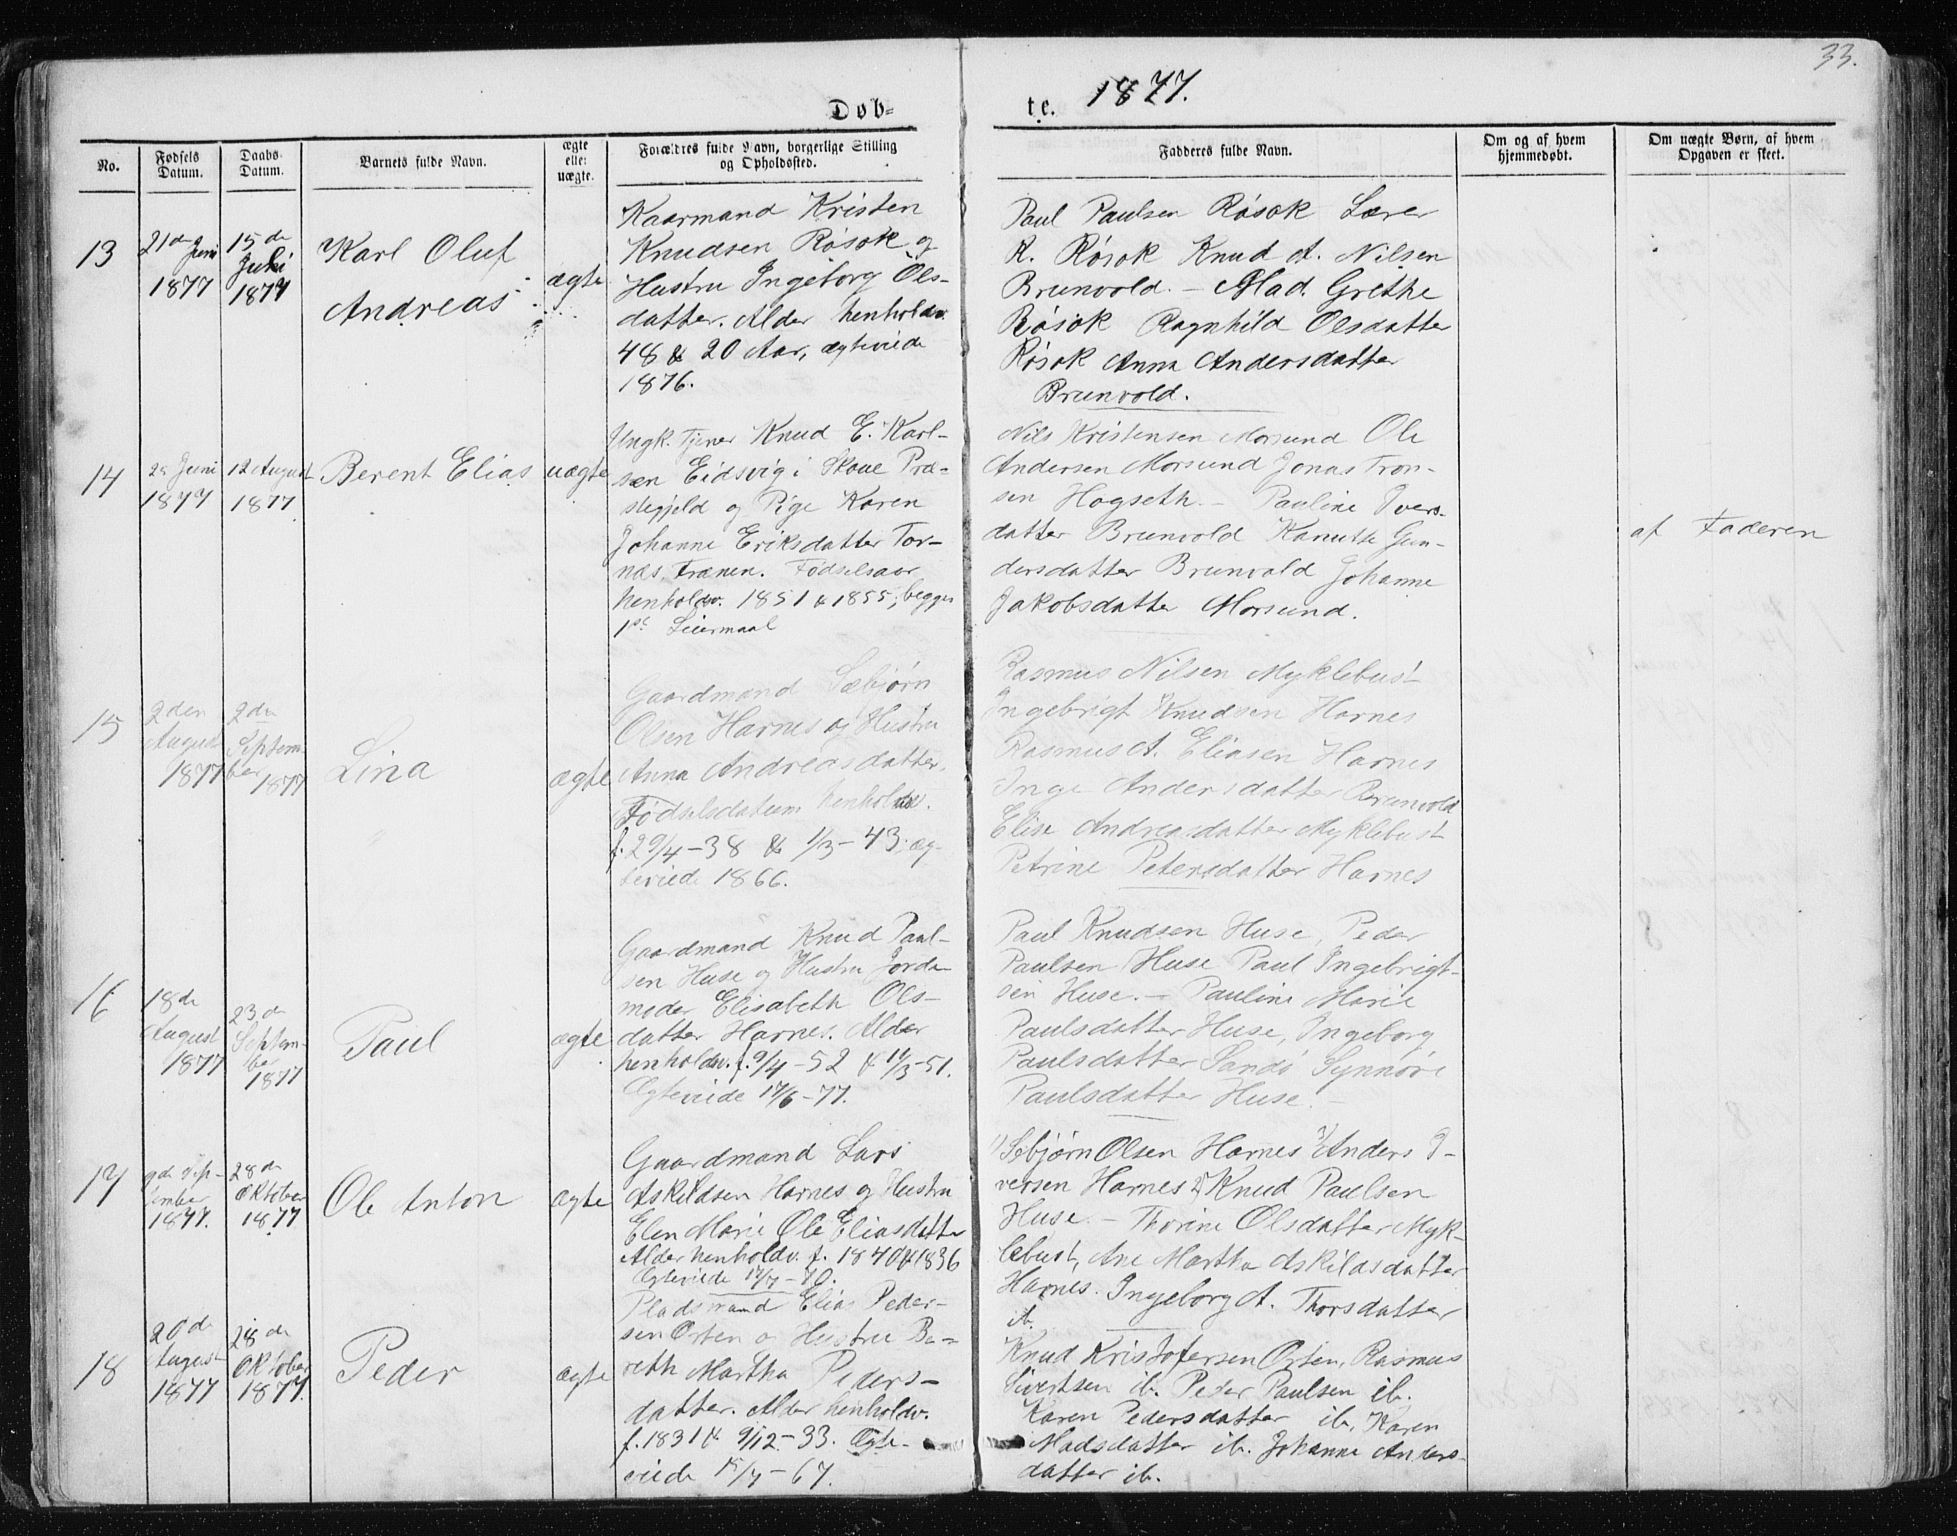 33.
Døb-
te. 1877.
No.
Fødsels Datum.
Daabs Datum.
Barnets fulde Navn.
ægte eller uægte.
Forældres fulde Navn, borgerlige Stilling og Opholdssted.
Faddernes fulde Navn.
Om og af hvem hjemmedøbt.
Om uægte Børn, af hvem Opgaven er skeet.
13
21de Juni
1877
15de
Juli
1877
Karl Oluf
Andreas
ægte
Kaarmand Kristen
Knudsen Røsok og
Hustru Ingeborg Ols-
datter. Alder henholdsv.
48 & 20 Aar, ægteviede
1876.
Paul Paulsen Røsok Lærer
K. Røsok Knud A. Nilsen
Brunvold. – Mad. Grethe
Røsok Ragnhild Olsdatter
Røsok Anna Andersdatter
Brunvold.
14
Juni
1877
12 August
1877
Berent Elias
uægte
Ungk. Tjener Knud E. Karl-
sen Eidsvig i Skoue Præ-
stegjeld og Pige Karen
Johanne Eriksdatter Tor-
næs Frænen. Fødselsaar
henholdsv. 1851 & 1855, begges
1ste Leiermaal
Nils Kristensen Morsund Ole
Andersen Morsund Jonas Tron-
sen Hogseth. – Pauline Ivers-
datter Brunvold Kanutte Gun-
dersdatter Brunvold Johanne
Jakobsdatter Morsund.
af Faderen
15
2den
August
1877
2den
Septem-
ber 1877
Lina
ægte
Gaardmand Sæbjørn
Olsen Harnes og Hustru
Anna Andreasdatter.
Fødselsdatum henholdsv.
f. 29/4 – 38 & 1/3 – 43. æg-
teviede 1866.
Rasmus Nilsen Myklebust
Ingebrigt Knudsen Harnes
Rasmus A. Eliasen Harnes
Inge Andersdatter Brunvold
Elise Andreasdatter Myklebust
Petrine Petersdatter Harnes
16
18de
August
1877
23de
Septem-
ber
1877
Paul
ægte
Gaardmand Knud Paul-
sen Huse og Hustru Jorde-
moder Elisabeth Ols-
datter Harnes. Alder
henholdsv. f. 9/4 – 52 & 14/3 – 51.
Ægteviede 17/6 – 77.
Paul Knudsen Huse, Peder
Paulsen Huse Paul Ingebrigt-
sen Huse. – Pauline Marie
Paulsdatter Huse, Ingeborg
Paulsdatter Sandø Synnøve
Paulsdatter Huse. –
17
9de Sep-
tember
1877.
28de
Oktober
1877
Ole Anton
ægte
Gaardmand Lars
Askildsen Harnes og Hustru
Elen Marie Ole Eliasdatter
Alder henholdv. f. 1840 & 1836
Ægteviede 17/7 – 70.
1) Sebjørn Olsen Harnes Anders I-
versen Harnes Knud Paulsen
Huse. – Thorine Olsdatter Myk-
lebust, Ane Martha Askildsdatter
Harnes. Ingeborg A. Thorsdatter
ib.
18
20de
August
1877
28de
Oktober
1877.
Peder
ægte
Pladsmand Elias Peder-
sen Orten og Hustru Be-
reth Martha Peders-
datter. Alder henholdv.
f. 1831 & 9/12 – 33. Ægte-
viede 15/7 – 67.
Knud Kristofersen Orten, Rasmus
Sivertsen ib. Peder Paulsen ib.
Karen Pedersdatter ib, Karen
Madsdatter ib. Johanne Anders-
datter ib.